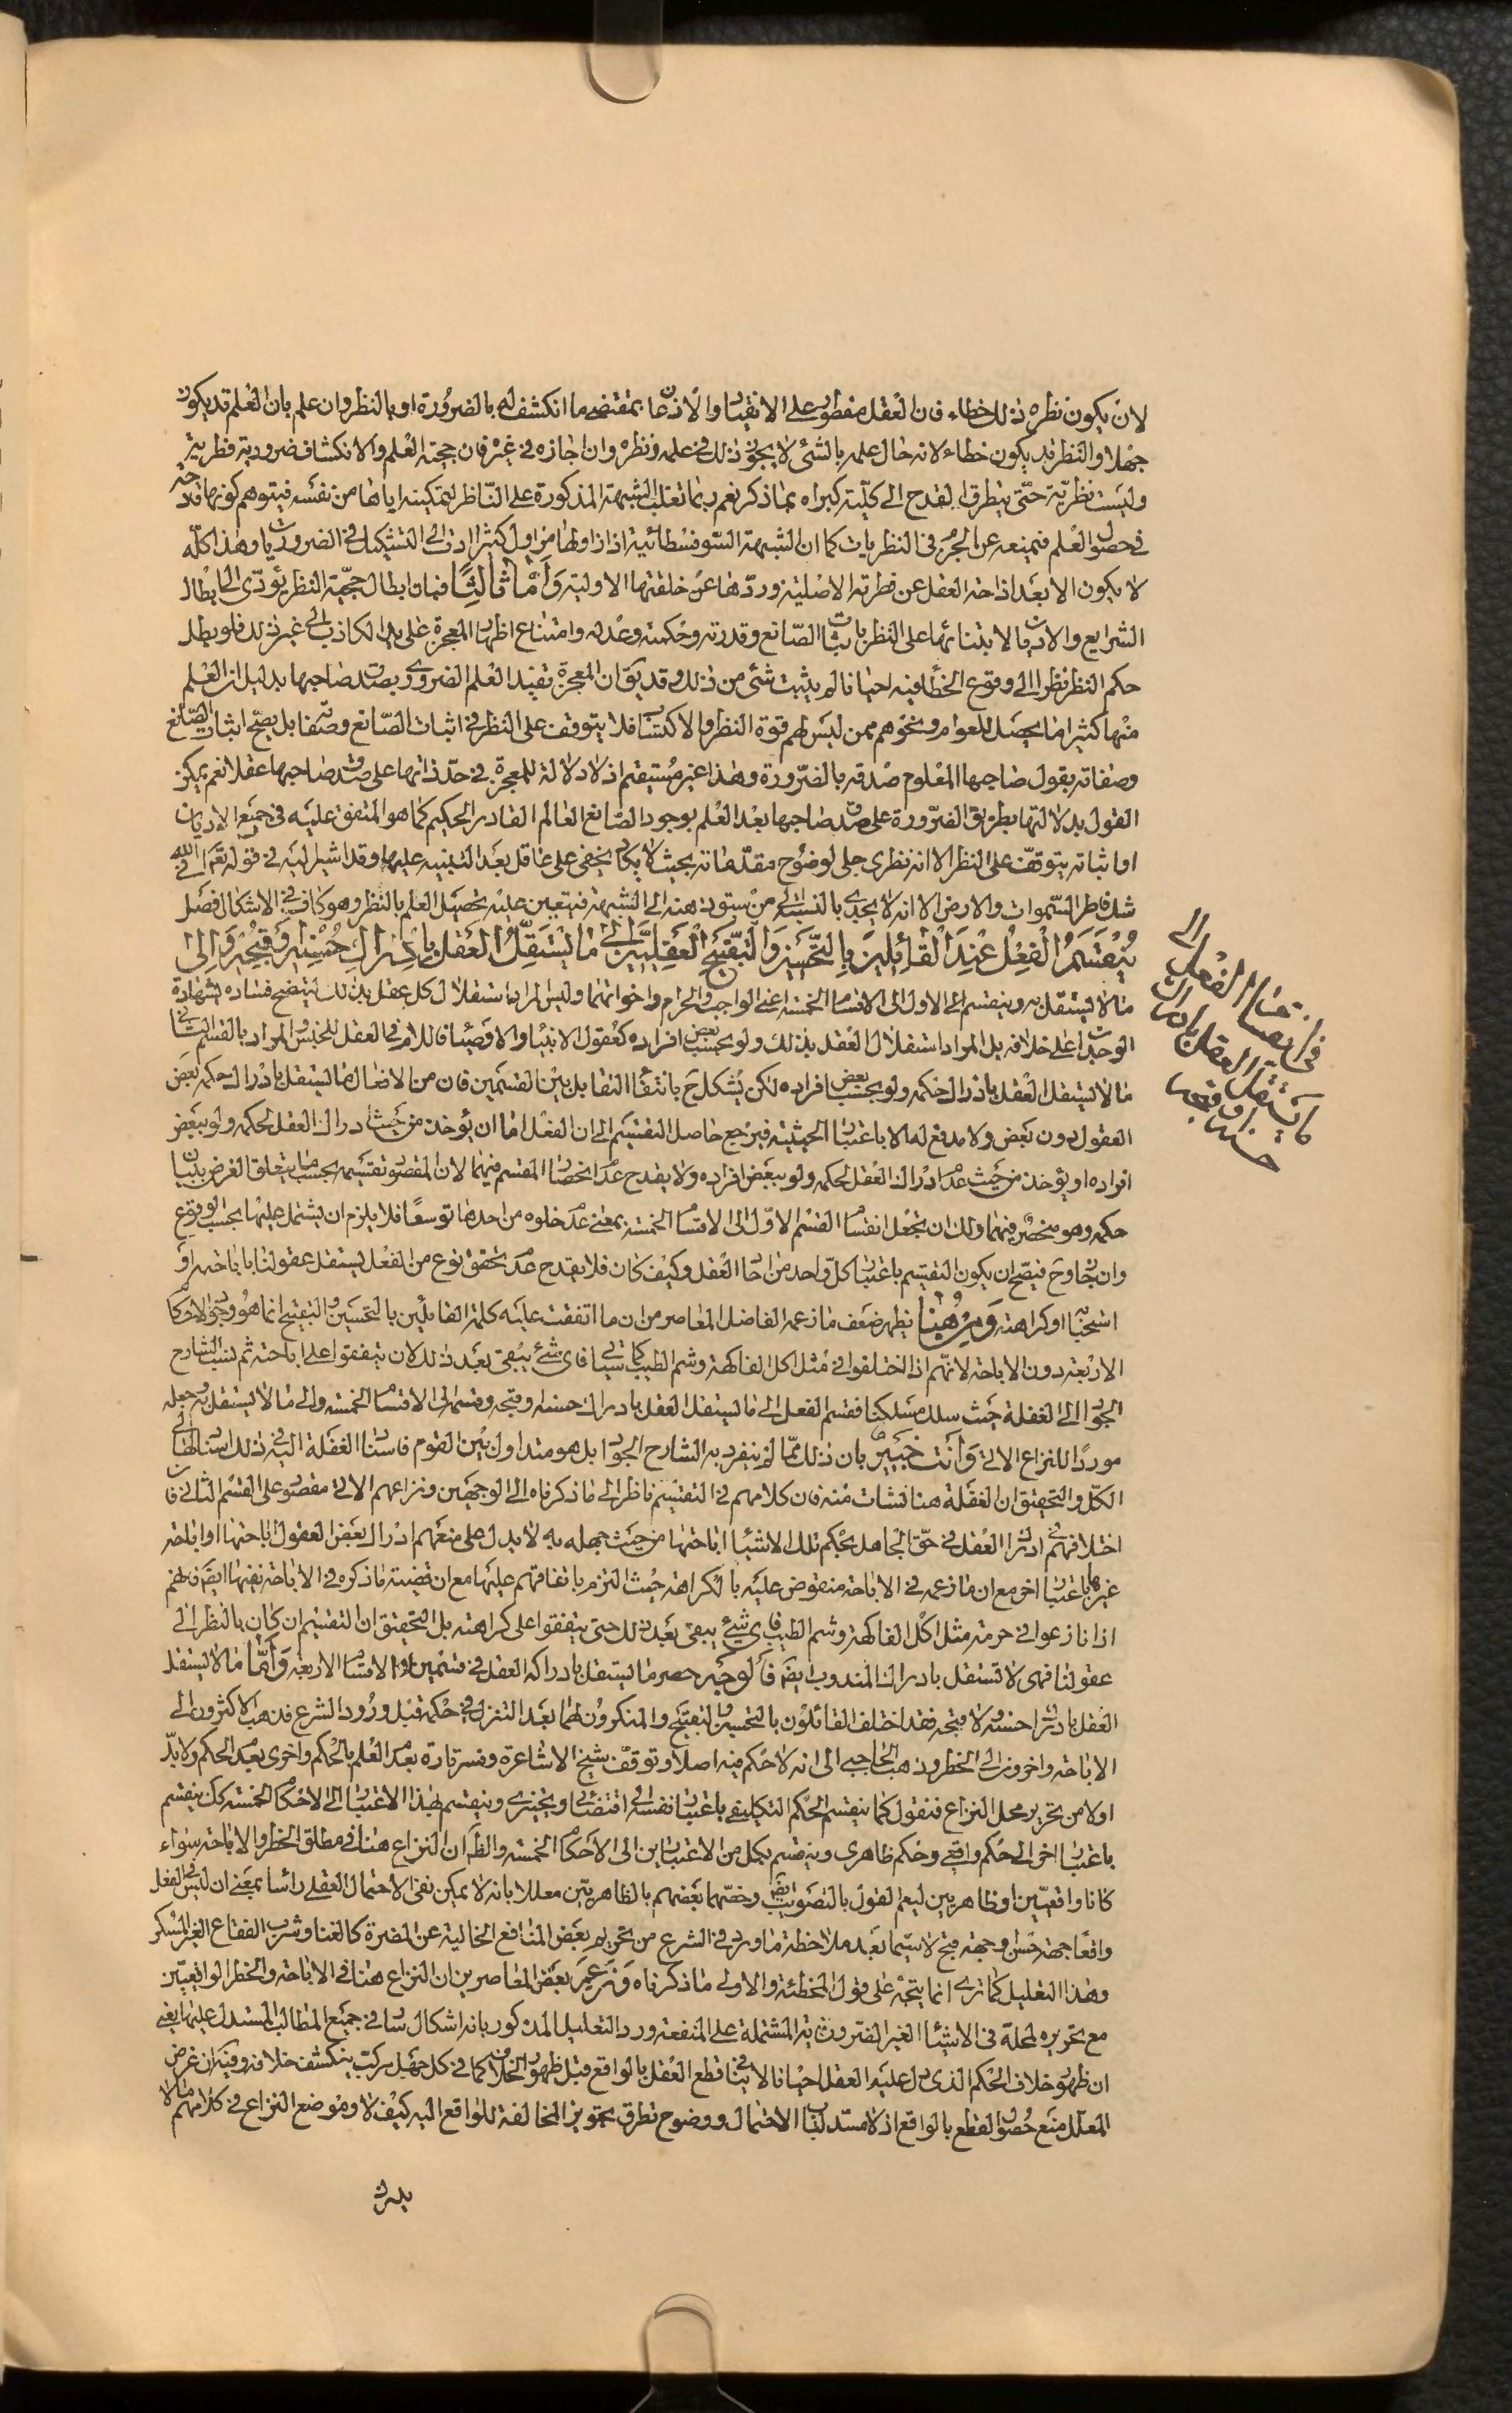 لان يكون نظره ذلك خطاء فان العقل مفطور على الانقياد والاذعان بمقتضى ما انكشف له بالضرورة او بالنظر وان علم بان العلم قد يكون
جهلا والنظر قد يكون خطاء لانه حال علمه بالشئ لا يجوز ذلك في علمه ونظره وان اجازه في غيره فان حجية العلم والانكشاف ضرورية فطرية
وليست نظرية حتى يتطرق القدح الى كلية كبراه بما ذكر نعم ربما تغلب الشبهة المذكورة على الناظر لتمكينه اياها من نفسه فيتوهم كونها قادحة
في حصول العلم فيمنعه عن الجزم في النظريات كما ان الشبهة السوفسطائية اذا زاولها مزاول كثيرا ادت الى التشكيك في الضروريات وهذا كله
لا يكون الا بعد ازاحة العقل عن فطرته الاصلية وردها عن خلقتها الاولية واما ثالثا فبان ابطال حجية النظر يؤدى الى ابطال
الشرايع والاديان لابتنائها على النظر باثبات الصانع وقدرته وحكمته وعدله وامتناع اظهار المعجزة على يد الكاذب الى غير ذلك فلو بطل
حكم النظر نظرا الى وقوع الخطأ فيه احيانا لم يثبت شئ من ذلك وقد يق ان المعجزة تفيد العلم الضرورى بصدق صاحبها بدليل ان العلم
منها كثيرا ما يحصل للعوام ونحوهم ممن ليس لهم قوة النظر والاكتساب فلا يتوقف على النظر في اثبات الصانع وصفاته بل يصح اثبات الصانع
وصفاته بقول صاحبها المعلوم صدقه بالضرورة وهذا غير مستقيم اذ لا دلالة للمعجزة في حد ذاتها على صدق صاحبها عقلا نعم يمكن
القول بدلالتها بطريق الضرورة على صدق صاحبها بعد العلم بوجود الصانع العالم القادر الحكيم كما هو المتفق عليه في جميع الاديان
او اثباته يتوقف على النظر الا انه نظرى جلى لوضوح مقدماته بحيث لا يكاد يخفى على عاقل بعد التنبيه عليها وقد اشير اليه في قوله تعالى افي الله
شك فاطر السموات والارض الا انه لا يجدى بالنسبة الى من سبقت ذهنه الى الشبهة فيتعين عليه تحصيل العلم بالنظر وهو كاف في الاشكال فصل
ينقسم الفعل عند القائلين بالتحسين والتقبيح العقليين الى ما يستقل العقل بادراك حسنه وقبحه والى
ما لا يستقل به وينقسم الى الاول الى الاقسام الخمسة اعني الواجب والحرام واخواتهما وليس المراد استقلال كل عقل بذلك ليتضح فساده بشهادة
الوجدان على خلافه بل المراد استقلال العقل بذلك ولو بحسب بعض افراده كعقول الانبياء والاوصياء فاللام في العقل للجنس والمراد بالقسم الثاني
ما لا يستقل العقل بادراك حكمه ولو بحسب بعض افراده لكن يشكل ح بانتفاء التقابل بين القسمين فان من الافعال ما يستقل بادراك حكمه بعض
العقول دون بعض ولا مدفع له الا باعتبار الحيثية فيرجع حاصل التقسيم الى ان الفعل اما ان يؤخذ من حيث ادراك العقل لحكمه ولو ببعض
افراده او يؤخذ من حيث عدم ادراك العقل لحكمه ولو ببعض افراده ولا يقدح عدم انحصار المقسم فيهما لان المقصود تقسيمه بحسب ما يتعلق الغرض ببيان
حكمه وهو منحصر فيهما ولك ان تجعل انقسام القسم الاول الى الاقسام الخمسة بمعنى عدم خلوه من احدها توسعا فلا يلزم ان يشتمل عليها بحسب الوقوع
وان جاز وح فيصح ان يكون التقسيم باعتبار كل واحد من احاد العقل وكيف كان فلا يقدح عدم تحقق نوع من الفعل يستقل عقولنا باباحته او
استحبابه او كراهته ومن هنا يظهر ضعف ما زعمه الفاضل المعاصر من ان ما اتفقت عليه كلمة القائلين بالتحسين والتقبيح انما هو وجود الاحكام
الاربعة دون الاباحة لانهم اذا اختلفوا في مثل اكل الفاكهة وشم الطيب كما سياتي فاى شئ يبقى بعد ذلك لان يتفقوا على اباحته ثم نسب الشارح
الجواد الى الغفلة حيث سلك مسلكنا فقسم الفعل الى ما يستقل العقل بادراك حسنه وقبحه وقسمه الى الاقسام الخمسة والى ما لا يستقل به وجعله
موردا للنزاع الاتي وانت خبير بان ذلك مما لم ينفرد به الشارح الجواد بل هو متداول بين القوم فاسناد الغفلة اليه في ذلك اسنادها الى
الكل والتحقيق ان الغفلة هنا نشات منه فان كلامهم في التقسيم ناظر الى ما ذكرناه الى الوجهين ونزاعهم الاتي مقصور على القسم الثاني فان
اختلافهم في ادراك العقل في حق الجاهل بحكم تلك الاشياء اباحتها من حيث جهله به لا يدل على منعهم ادراك بعض العقول اباحتها او اباحة
غيرها باعتبار اخر مع ان ما زعمه في الاباحة منقوض عليه بالكراهة حيث التزم باتفاقهم عليها مع ان قضية ما ذكره في الاباحة نفيها ايضا فانهم
اذا نازعوا في حرمة مثل اكل الفاكهة وشم الطيب فاى شئ يبقى بعد ذلك حتى يتفقوا على كراهته بل التحقيق ان التقسيم ان كان بالنظر الى
عقولنا فهى لا تستقل بادراك المندوب ايضا فالوجه حصر ما يستقل بادراكه العقل في قسمين او الاقسام الاربعة واما ما لا يستقل
العقل بادراك حسنه ولا قبحه فقد اختلف القائلون بالتحسين والتقبيح والمنكرون لهما بعد التنزل في حكمه قبل ورود الشرع فذهب الاكثرون الى
الاباحة واخرون الى الحظر وذهب الحاجبى الى انه لا حكم فيه اصلا وتوقف شيخ الاشاعرة وفسر تارة بعدم العلم بالحكم واخرى بعدم الحكم ولا بد
اولا من تحرير محل النزاع فنقول كما ينقسم الحكم التكليفى باعتبار نفسه الى اقتضائى وتخييرى وينقسم بهذا الاعتبار الى الاحكام الخمسة كك ينقسم
باعتبار اخر الى حكم واقعى وحكم ظاهرى وينقسم بكل من الاعتبارين الى الاحكام الخمسة والظ ان النزاع هنا في مطلق الحظر والاباحة سواء
كانا واقعيين او ظاهريين ليعم القول بالتصويب ايضا وخصهما بعضهم بالظاهريين معللا بانه لا يمكن نفى الاحتمال العقلى رأسا بمعنى ان ليس في الفعل
واقعا جهة حسن وجهة قبح لا سيما بعد ملاحظة ما ورد في الشرع من تحريم بعض المنافع الخالية عن المضرة كالغنا وشرب الفقاع الغير المسكر
وهذا التعليل كما ترى انما يتجه على قول المخطئة والاولى ما ذكرناه وزعم بعض المعاصرين ان النزاع هنا في الاباحة والحظر الواقعيين
مع تحريره لمحله في الاشياء الغير الضرورية المشتملة على المنفعة ورد التعليل المذكور بانه اشكال سار في جميع المطالب المستدل عليها يعنى
ان ظهور خلاف الحكم الذى دل عليه العقل احيانا لا ينافي قطع العقل بالواقع قبل ظهور الخلاف كما في كل جهل مركب ينكشف خلافه وفيه ان غرض
المعلل منع حصول القطع بالواقع اذ لا مستند لنا الاحتمال ووضوح تطرق تجويز المخالفة للواقع اليه كيف لا وموضع النزاع في كلامهم ما لا
يدرك
في انقسام الفعل الى
ما يستقل العقل بادراك
حسنه او قبحه